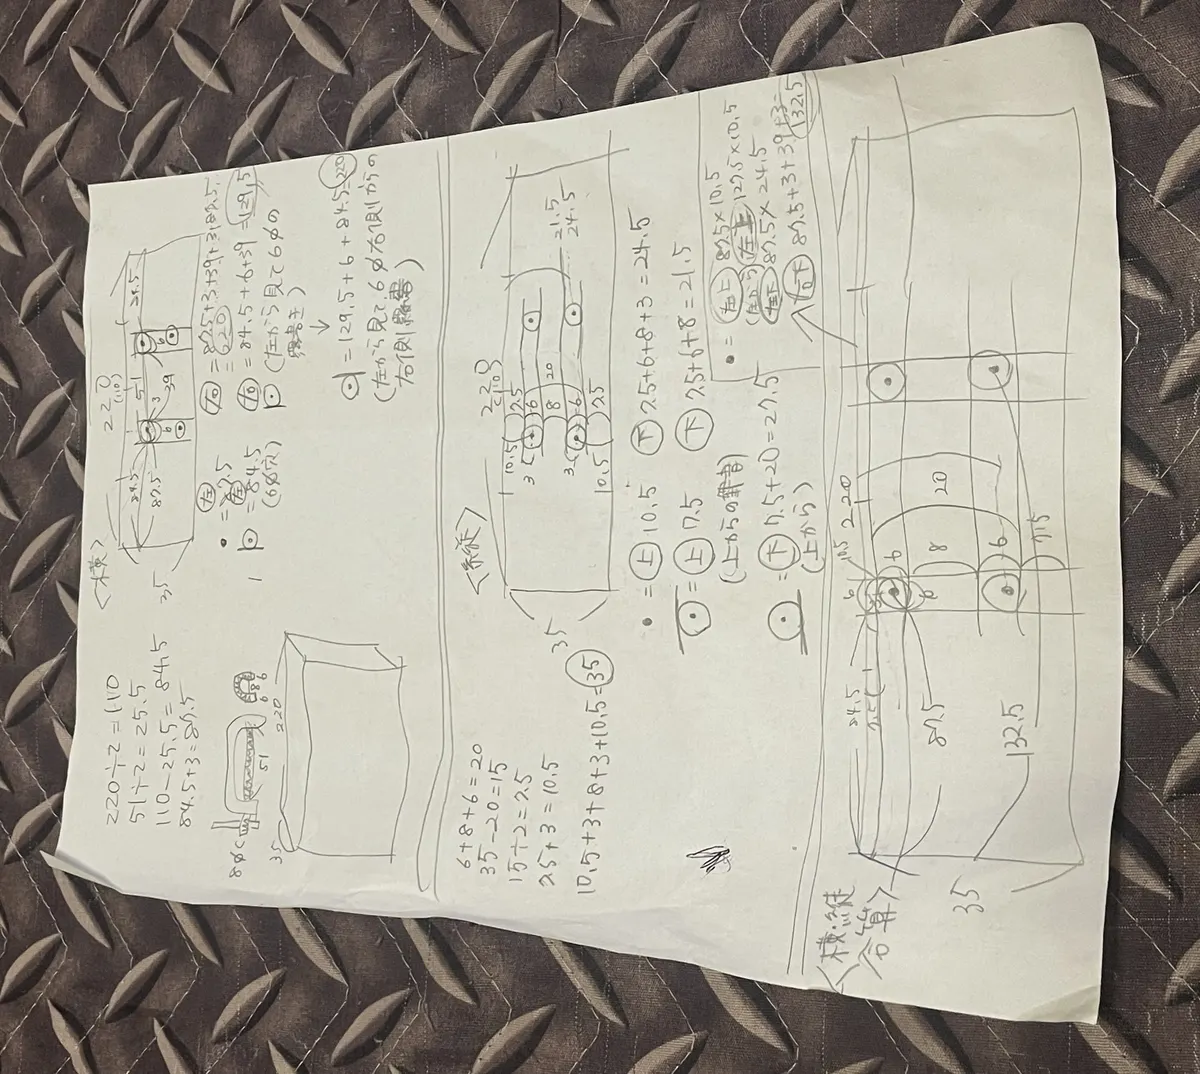 220÷2=110
51÷2=25.5
110-25.5=84.5
84.5+3=87.5
8φ
51
6 8 6
35
220
<横>
220
(110)
84.5
51
84.5
3
39
87.5
6
6
35
• = 左 87.5
= 左 84.5
(6φ穴)
右 = 87.5+3+39+3+87.5
= 220
右 = 84.5+6+39=129.5
(左から見て6φの
↓
= 129.5+6+84.5=220
(左から見て6φ右側からの
6+8+6=20
35-20=15
15÷2=7.5
7.5+3=10.5
10.5+3+8+3+10.5=35
<縦>
220
(110)
10.5
7.5
3
6
8
20
3
6
10.5
7.5
21.5
24.5
35
• = 上 10.5
下 7.5+6+8+3=24.5
= 上 7.5
下 7.5+6+8=21.5
(上からの
= 下 7.5+20=27.5
(上から)
• = 左上 87.5×10.5
(左から 左上 127.5×10.5
左下 87.5×24.5
右下 87.5+3+39+3
132.5
<横・縦
合算>
220
84.5
10.5
6
6
8
20
6
7.5
87.5
132.5
35